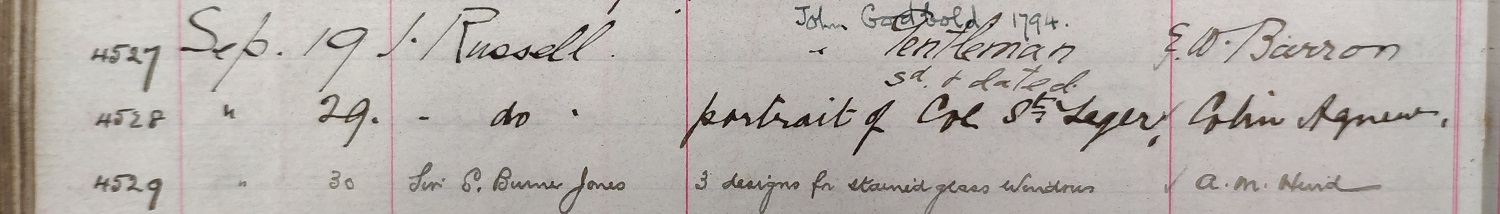 John Godbold. 1794.
4527 Sep. 19 J. Russell. " Gentleman E. W. Barron
sd. & dated.
4528 " 29. - do - portrait of Col St. Leger, Colin Agnew.
4529 " 30 Sir E. Burne Jones 3 designs for stained glass windows A. M. Hind